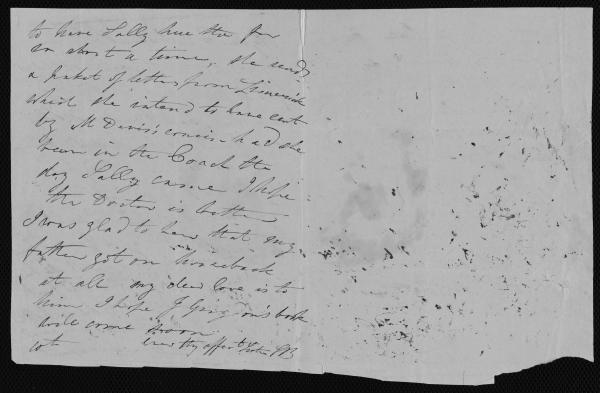 to have Sally here tho for
so short a time, she sends
a packet of letters from Limerick
which she intend to have sent
by M Davis's cousin had she
been in the Coach the
day Sally came I hope
the Doctor is better
I was glad to hear that my
father got on horseback
at all my dear love is to
him I hope J Grigson's book
will come soon
thy affect